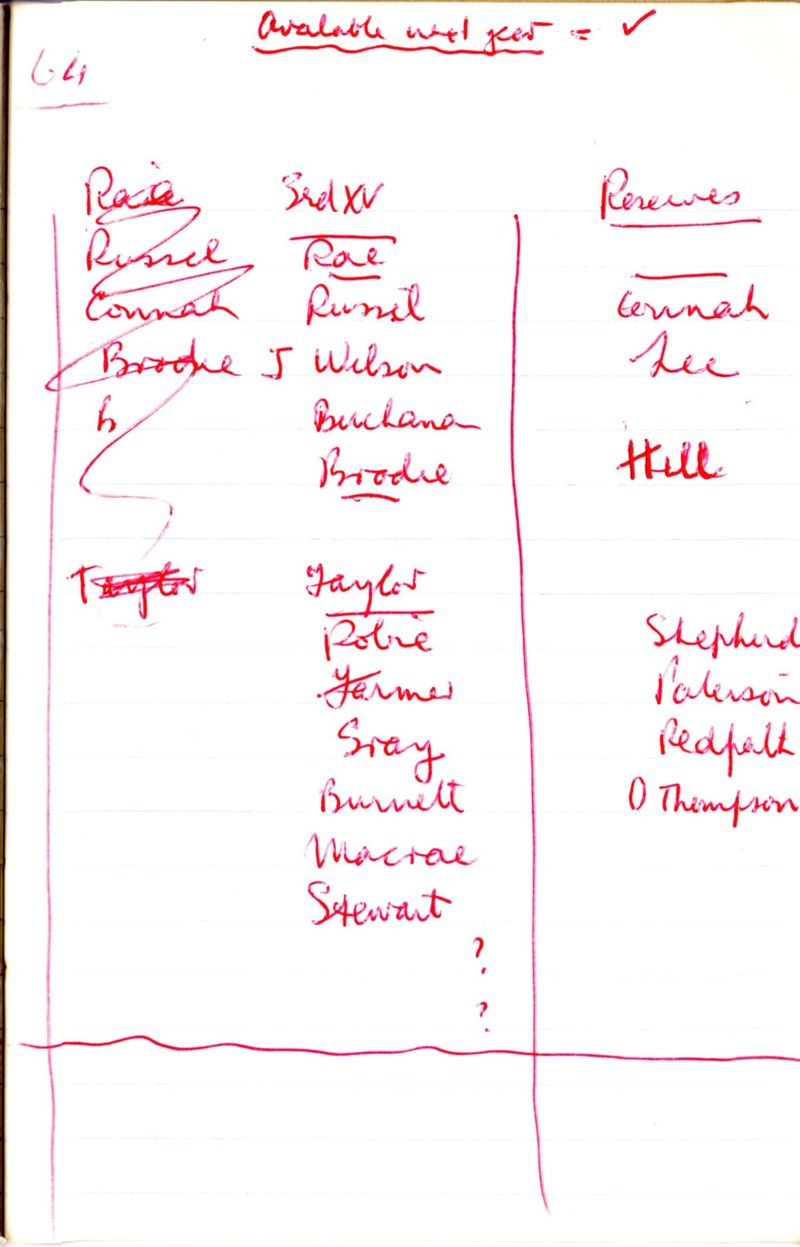 Available next year = ✓
64
3rd XV Reserves
Russel Rae
Connah Russel Connah
Brodie J Wilson Lee
B Buchanan
Brodie Hill
Taylor Taylor
Robie Shepherd
Farmer Paterson
Gray Redpath
Burnett D Thompson
Macrae
Stewart
?
?